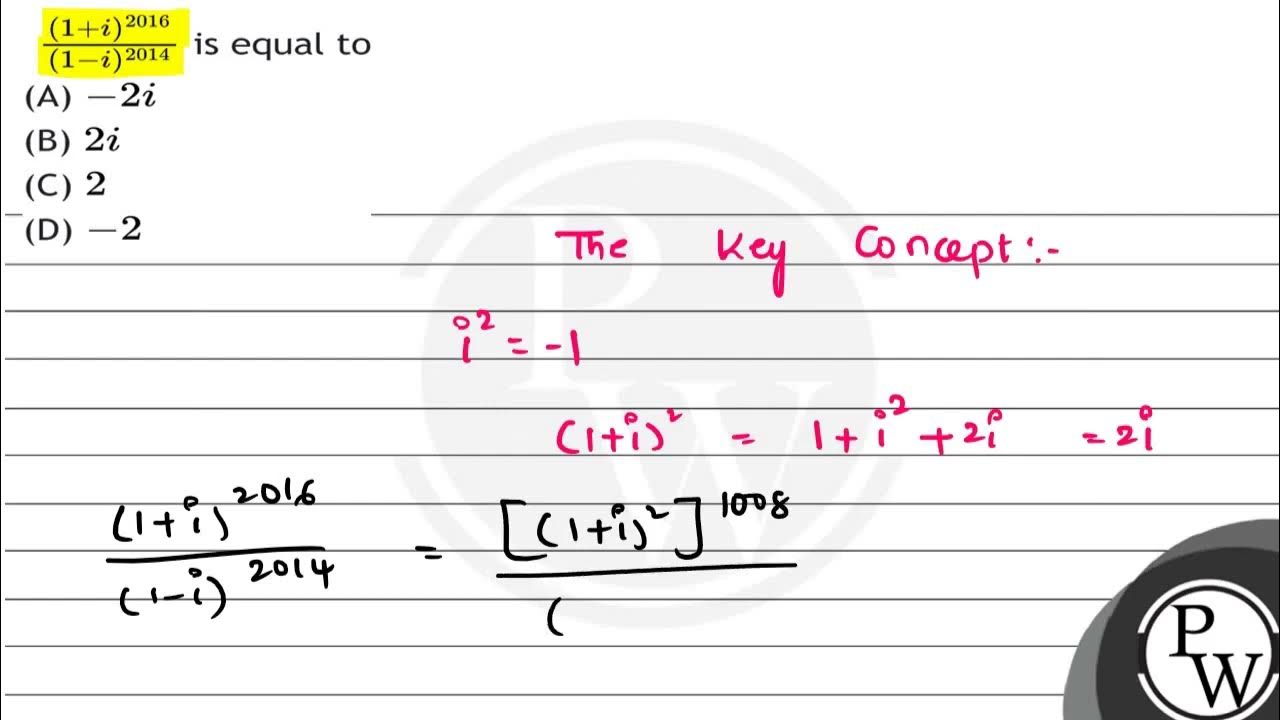 (1+i)^2016 / (1−i)^2014 is equal to
(A) −2i
(B) 2i
(C) 2
(D) −2
The Key Concept :-
i^2 = -1
(1+i)^2 = 1 + i^2 + 2i = 2i
(1+i)^2016 / (1-i)^2014 = [(1+i)^2]^1008 / (
PW
PW